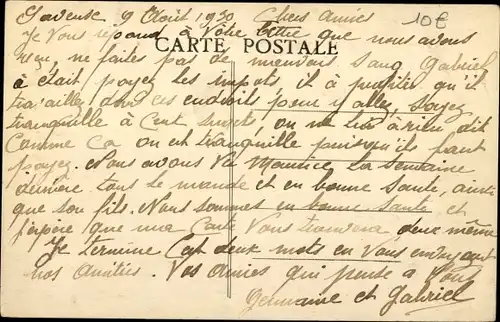 9 Août 1930 Chers Amies
10€
Je Vous répond à Vôtre lettre que nous avons
CARTE POSTALE
reçu, ne faites pas de mauvais sang Gabriel
à était payez les impots, il à profiter qu'il
travailles dans ces endroits pour y aller, Soyez
tranquille à cent sujets, on ne lui à rien dit
comme ça on est tranquille puisqu'ils sont
payez. Nous avons Vu Maurice la Semaine
dernière tous le monde et en bonne Santé, ainsi
que son fils. Nous sommes en bonne Santé et
j'espère que ma Carte Vous trouvera de même
Je termine Cat deux mots en Vous envoyant
nos Amitiés. Vos Amies qui pense a Vous
Germaine et Gabriel